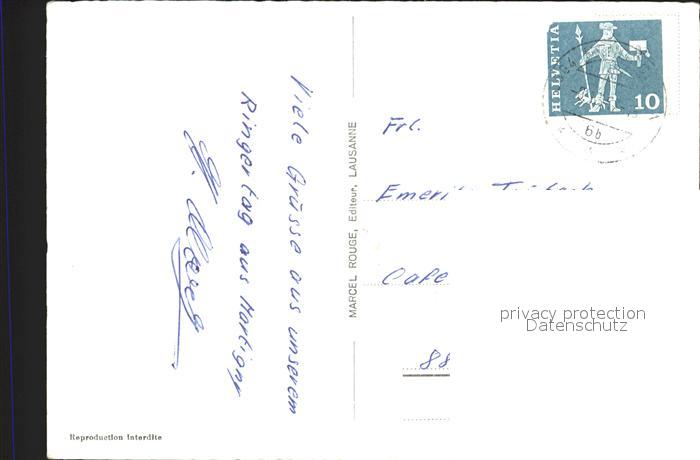 HELVETIA
10
6b
Viele Grüsse aus unserem
Ringertag aus Martigny
MARCEL ROUGE, Editeur, LAUSANNE
Frl.
Emeri
Cafe
88
privacy protection
Datenschutz
Reproduction interdite